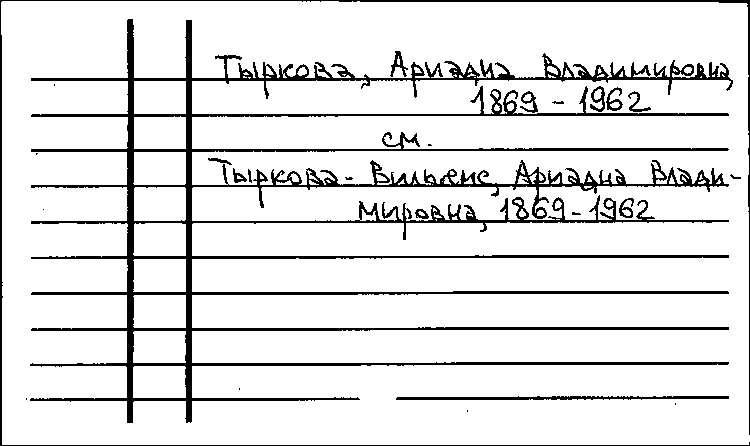 Тыркова, Ариадна Владимировна,
1869-1962
см.
Тыркова-Вильямс, Ариадна Влади-
мировна, 1869-1962